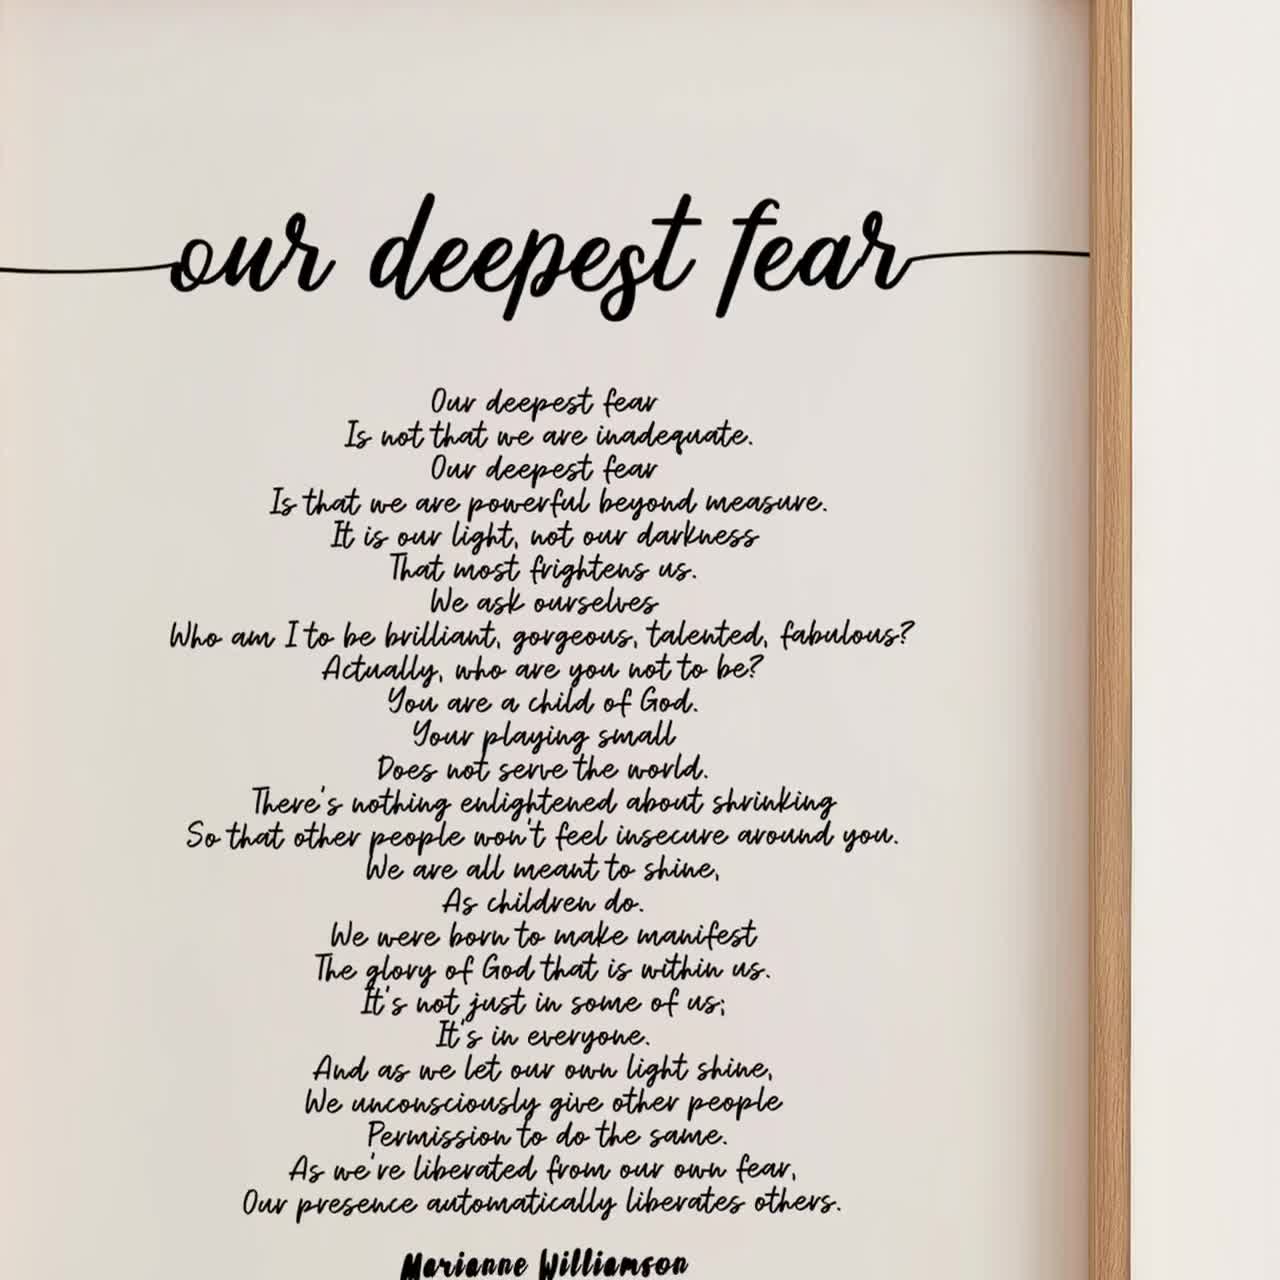 our deepest fear
Our deepest fear
Is not that we are inadequate.
Our deepest fear
Is that we are powerful beyond measure.
It is our light, not our darkness
That most frightens us.
We ask ourselves
Who am I to be brilliant, gorgeous, talented, fabulous?
Actually, who are you not to be?
You are a child of God.
Your playing small
Does not serve the world.
There's nothing enlightened about shrinking
So that other people won't feel insecure around you.
We are all meant to shine,
As children do.
We were born to make manifest
The glory of God that is within us.
It's not just in some of us;
It's in everyone.
And as we let our own light shine,
We unconsciously give other people
Permission to do the same.
As we're liberated from our own fear,
Our presence automatically liberates others.
Marianne Williamson